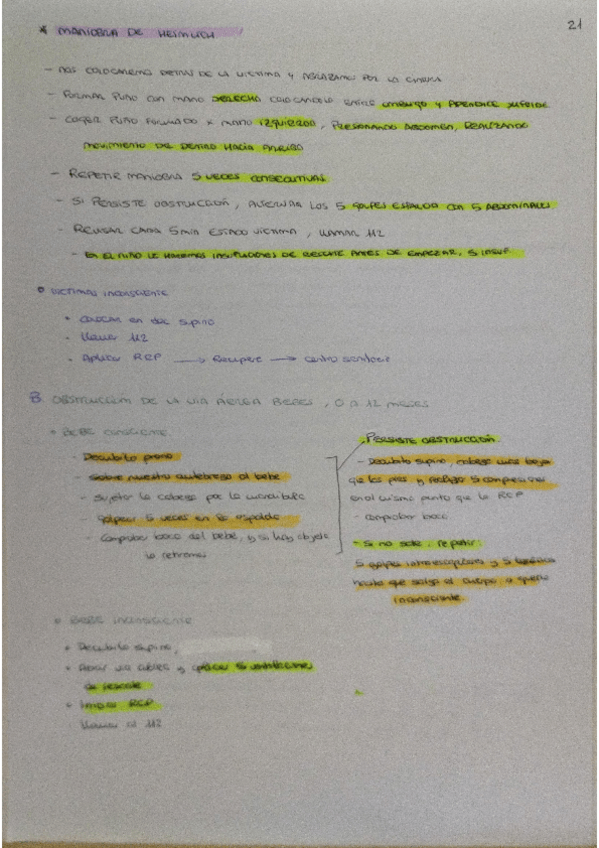 21
* MANIOBRA DE HEIMLICH
- NOS COLOCAREMOS DETRAS DE LA VICTIMA Y ABRAZAMOS POR LA CINTURA
- FORMAR PUÑO CON MANO DERECHO COLOCANDOLO ENTRE OMBLIGO Y APENDICE XIFOIDE
- COGER PUÑO FORMADO X MANO IZQUIERDO, PRESIONANDO ABDOMEN, REALIZANDO
MOVIMIENTO DEL DENTRO HACIA ARRIBA
- REPETIR MANIOBRA 5 VECES CONSECUTIVAS.
- SI PERSISTE OBSTRUCCIÓN, ALTERNAR LOS 5 GOLPES ESPALDA CON 5 ABDOMINALES.
- REVISAR CADA 5 MIN ESTADO VICTIMA, LLAMAR 112
- EN EL NIÑO LE HAREMOS INSUFLACIONES DE RESCATE ANTES DE EMPEZAR, 5 INSUF.
VICTIMAS INCONSCIENTE
• COLOCAR en dec supino
• Llamar 112
• Aplicar RCP → Recupere → centro sanitario
B. OBSTRUCCION DE LA VIA AÉREA BEBES, 0 A 12 MESES
• BEBE CONSCIENTE.
- Decubito prono
- sobre nuestro antebrazo al bebe
- sujetar la cabeza por la mandibula
- golpear 5 veces en la espalda
- Comprobar boca del bebe, y si hay objeto
lo retiramos
PERSISTE OBSTRUCCIÓN
- Decubito supino, cabeza mas baja
que los pies y realizo 5 compresiones
en el mismo punto que la RCP
- comprobar boca
- Si no sale, repetir:
5 golpes interescapulares y 5
hasta que salga el cuerpo o quede
inconsciente.
• BEBE INCONSCIENTE
• Decubito supino,
• Abrir via aérea y 5 ventilaciones
de rescate
• Iniciar RCP
- llamar al 112